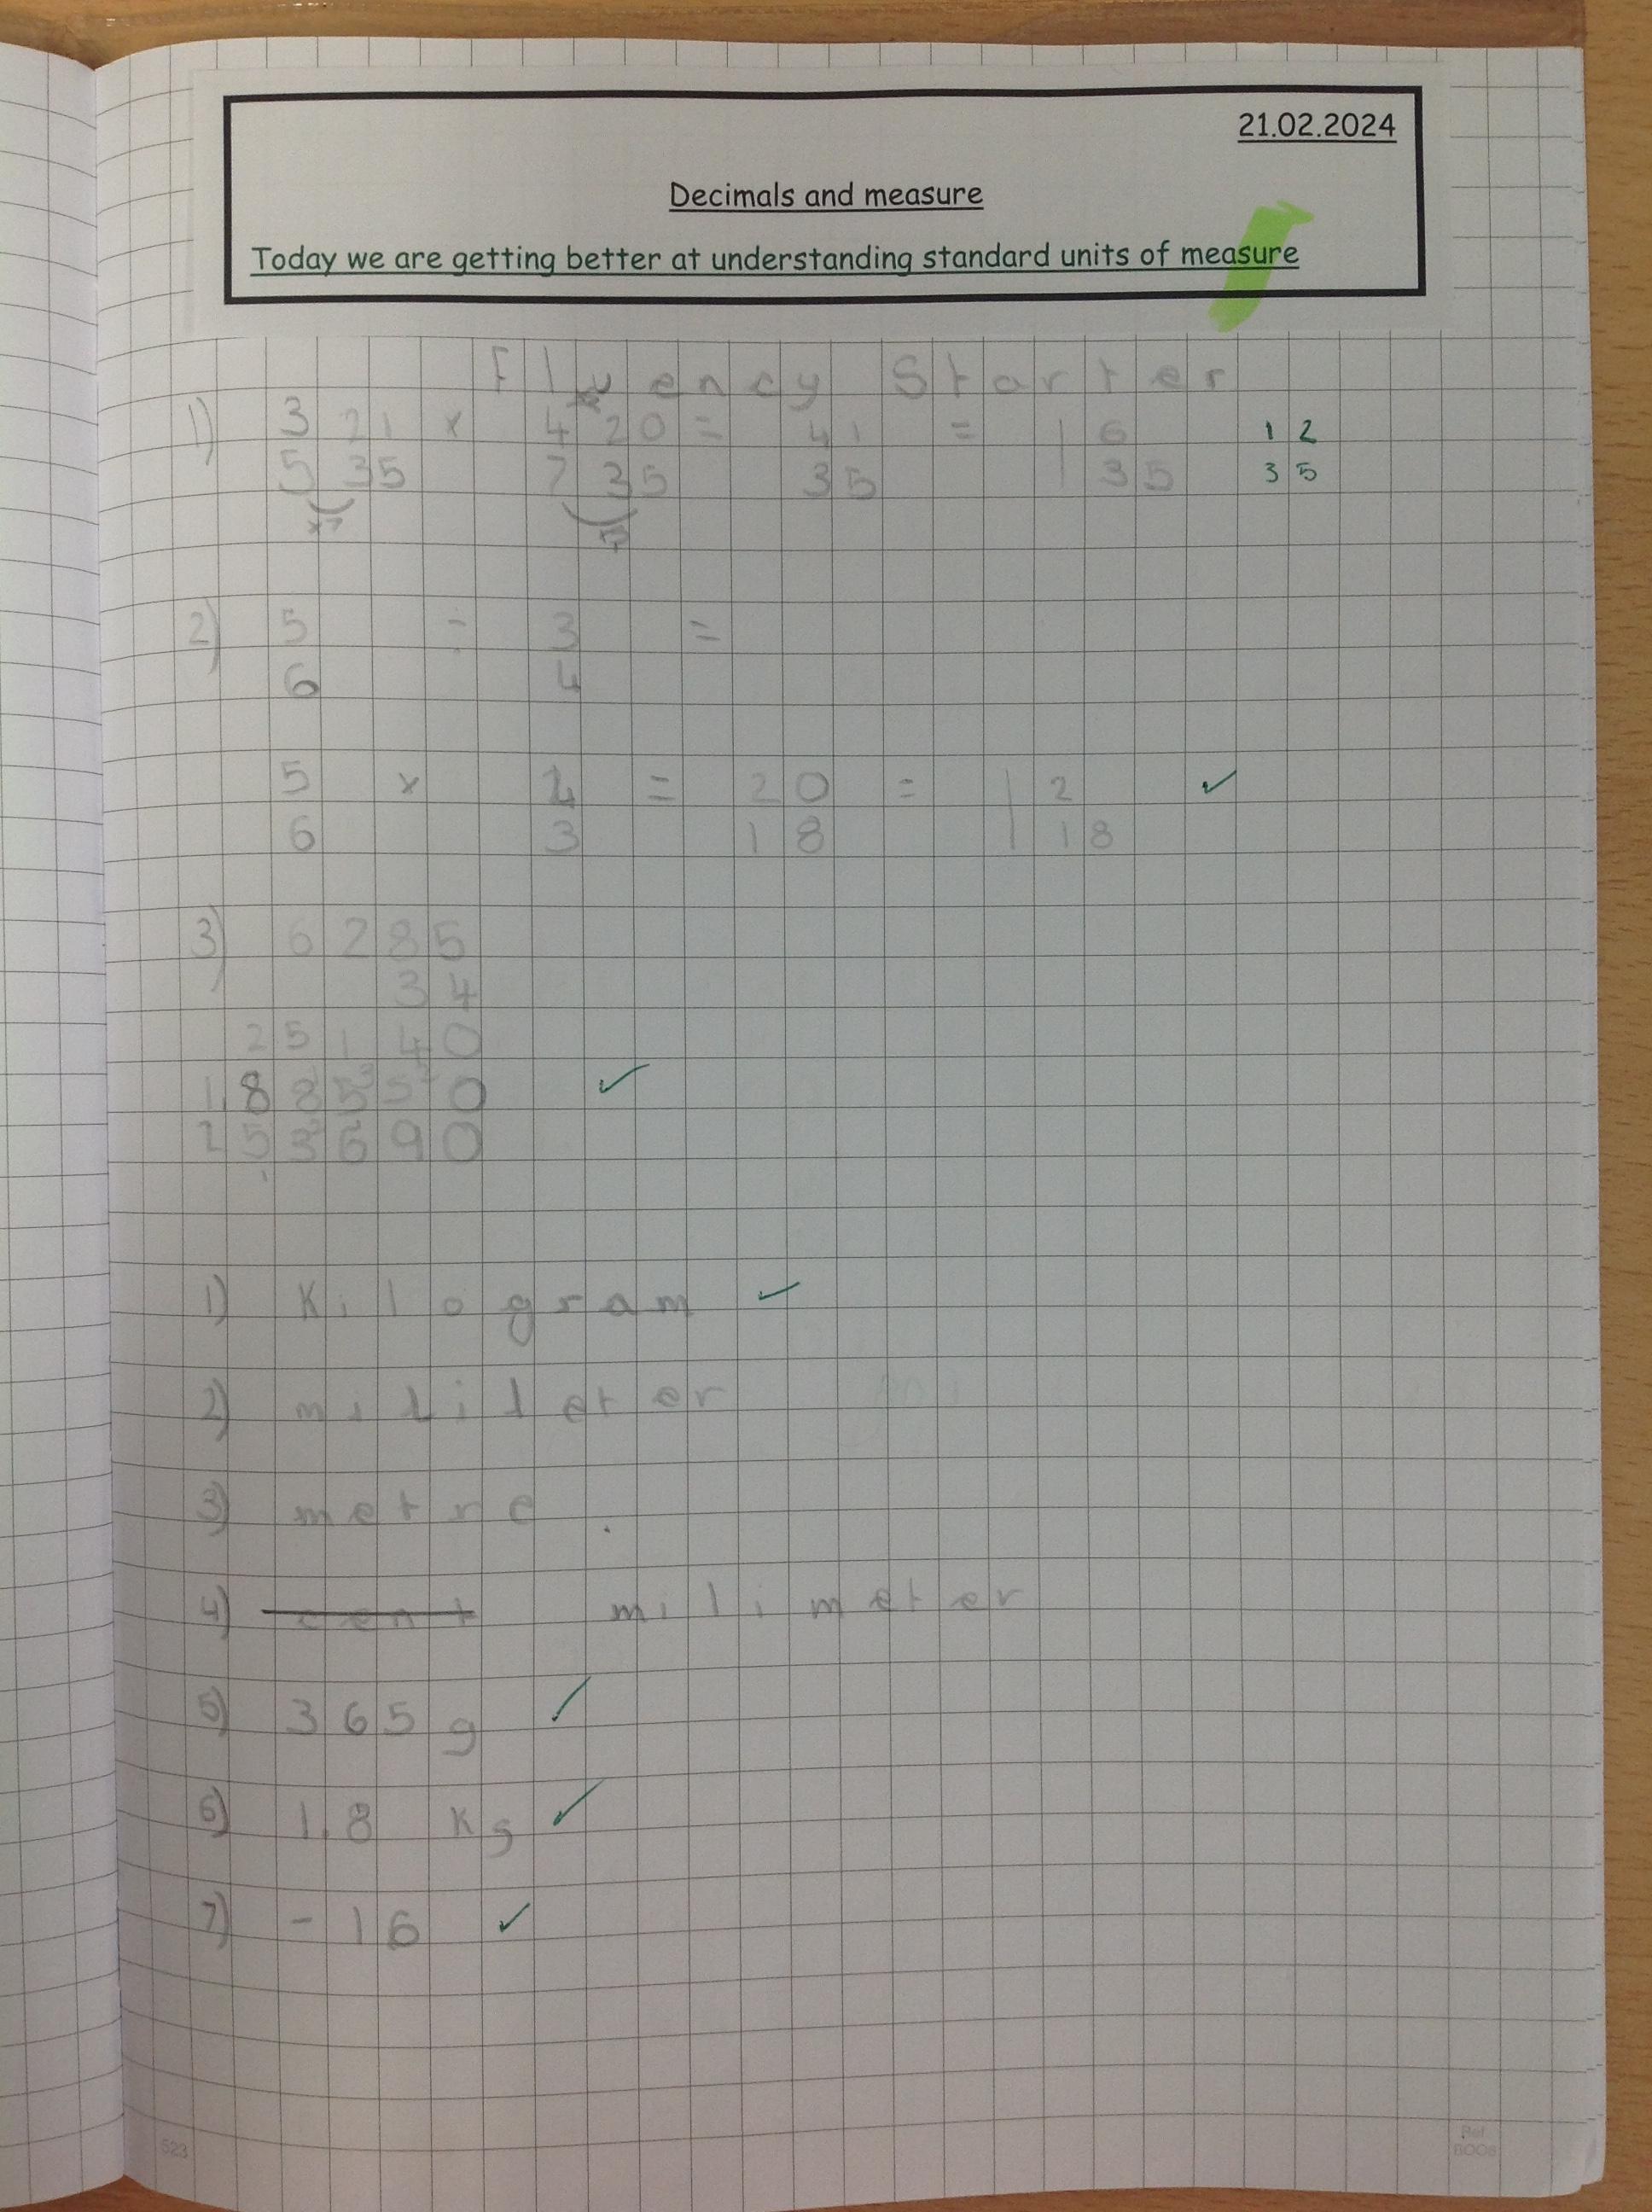 21.02.2024
Decimals and measure
Today we are getting better at understanding standard units of measure
Fluency Starter
1) 3 21 × 4 20 = 41 = 1 6 12
5 35 7 35 35 35 35
×7 ×5
2) 5 ÷ 3 =
6 4
5 × 4 = 20 = 1 2 ✓
6 3 18 18
3) 6285
34
25140
188550 ✓
213690
1) Kilogram ✓
2) milileter
3) metre
4) cent milimeter
5) 365g ✓
6) 1.8 Kg ✓
7) -16 ✓
523
Ref